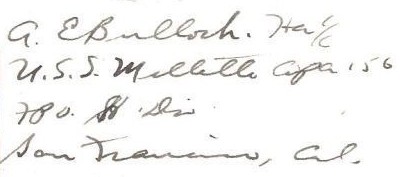 A. E. Bulloch. Ha 1/c
U.S.S. Mellette Apa. 156
FPO. H Div
San Francisco, Cal.